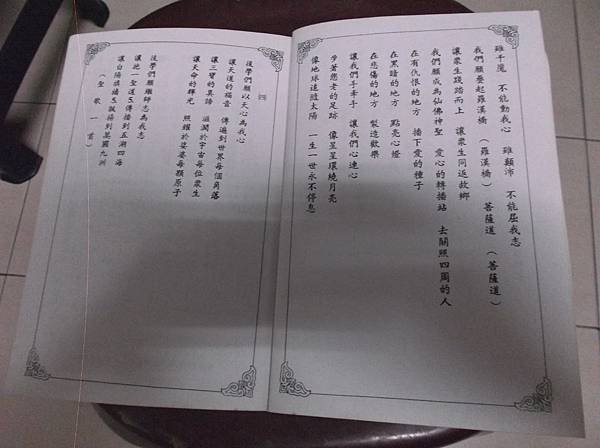 雖千魔 不能動我心 雖顛沛 不能屈我志
我們願疊起羅漢橋 (羅漢橋) 菩薩道 (菩薩道)
讓眾生踐踏而上 讓眾生同返故鄉
我們願成為仙佛神聖 愛心的轉播站 去關照四周的人
在有仇恨的地方 播下愛的種子
在黑暗的地方 點亮心燈
在悲傷的地方 製造歡樂
讓我們手牽手 讓我們心連心
步著您老的足跡 像星星環繞月亮
像地球速繞太陽 一生一世永不停息
四
後學們願以天心為我心
讓天道的福音 傳遍到世界每個角落
讓三寶的真諦 滋潤於宇宙每位眾生
讓天命的輝光 照耀於娑婆每顆原子
後學們願雕師志為我志
讓把一聖道傳播到五湖四海
讓白陽旗幟飄揚到萬國九洲
(聖歌一首)